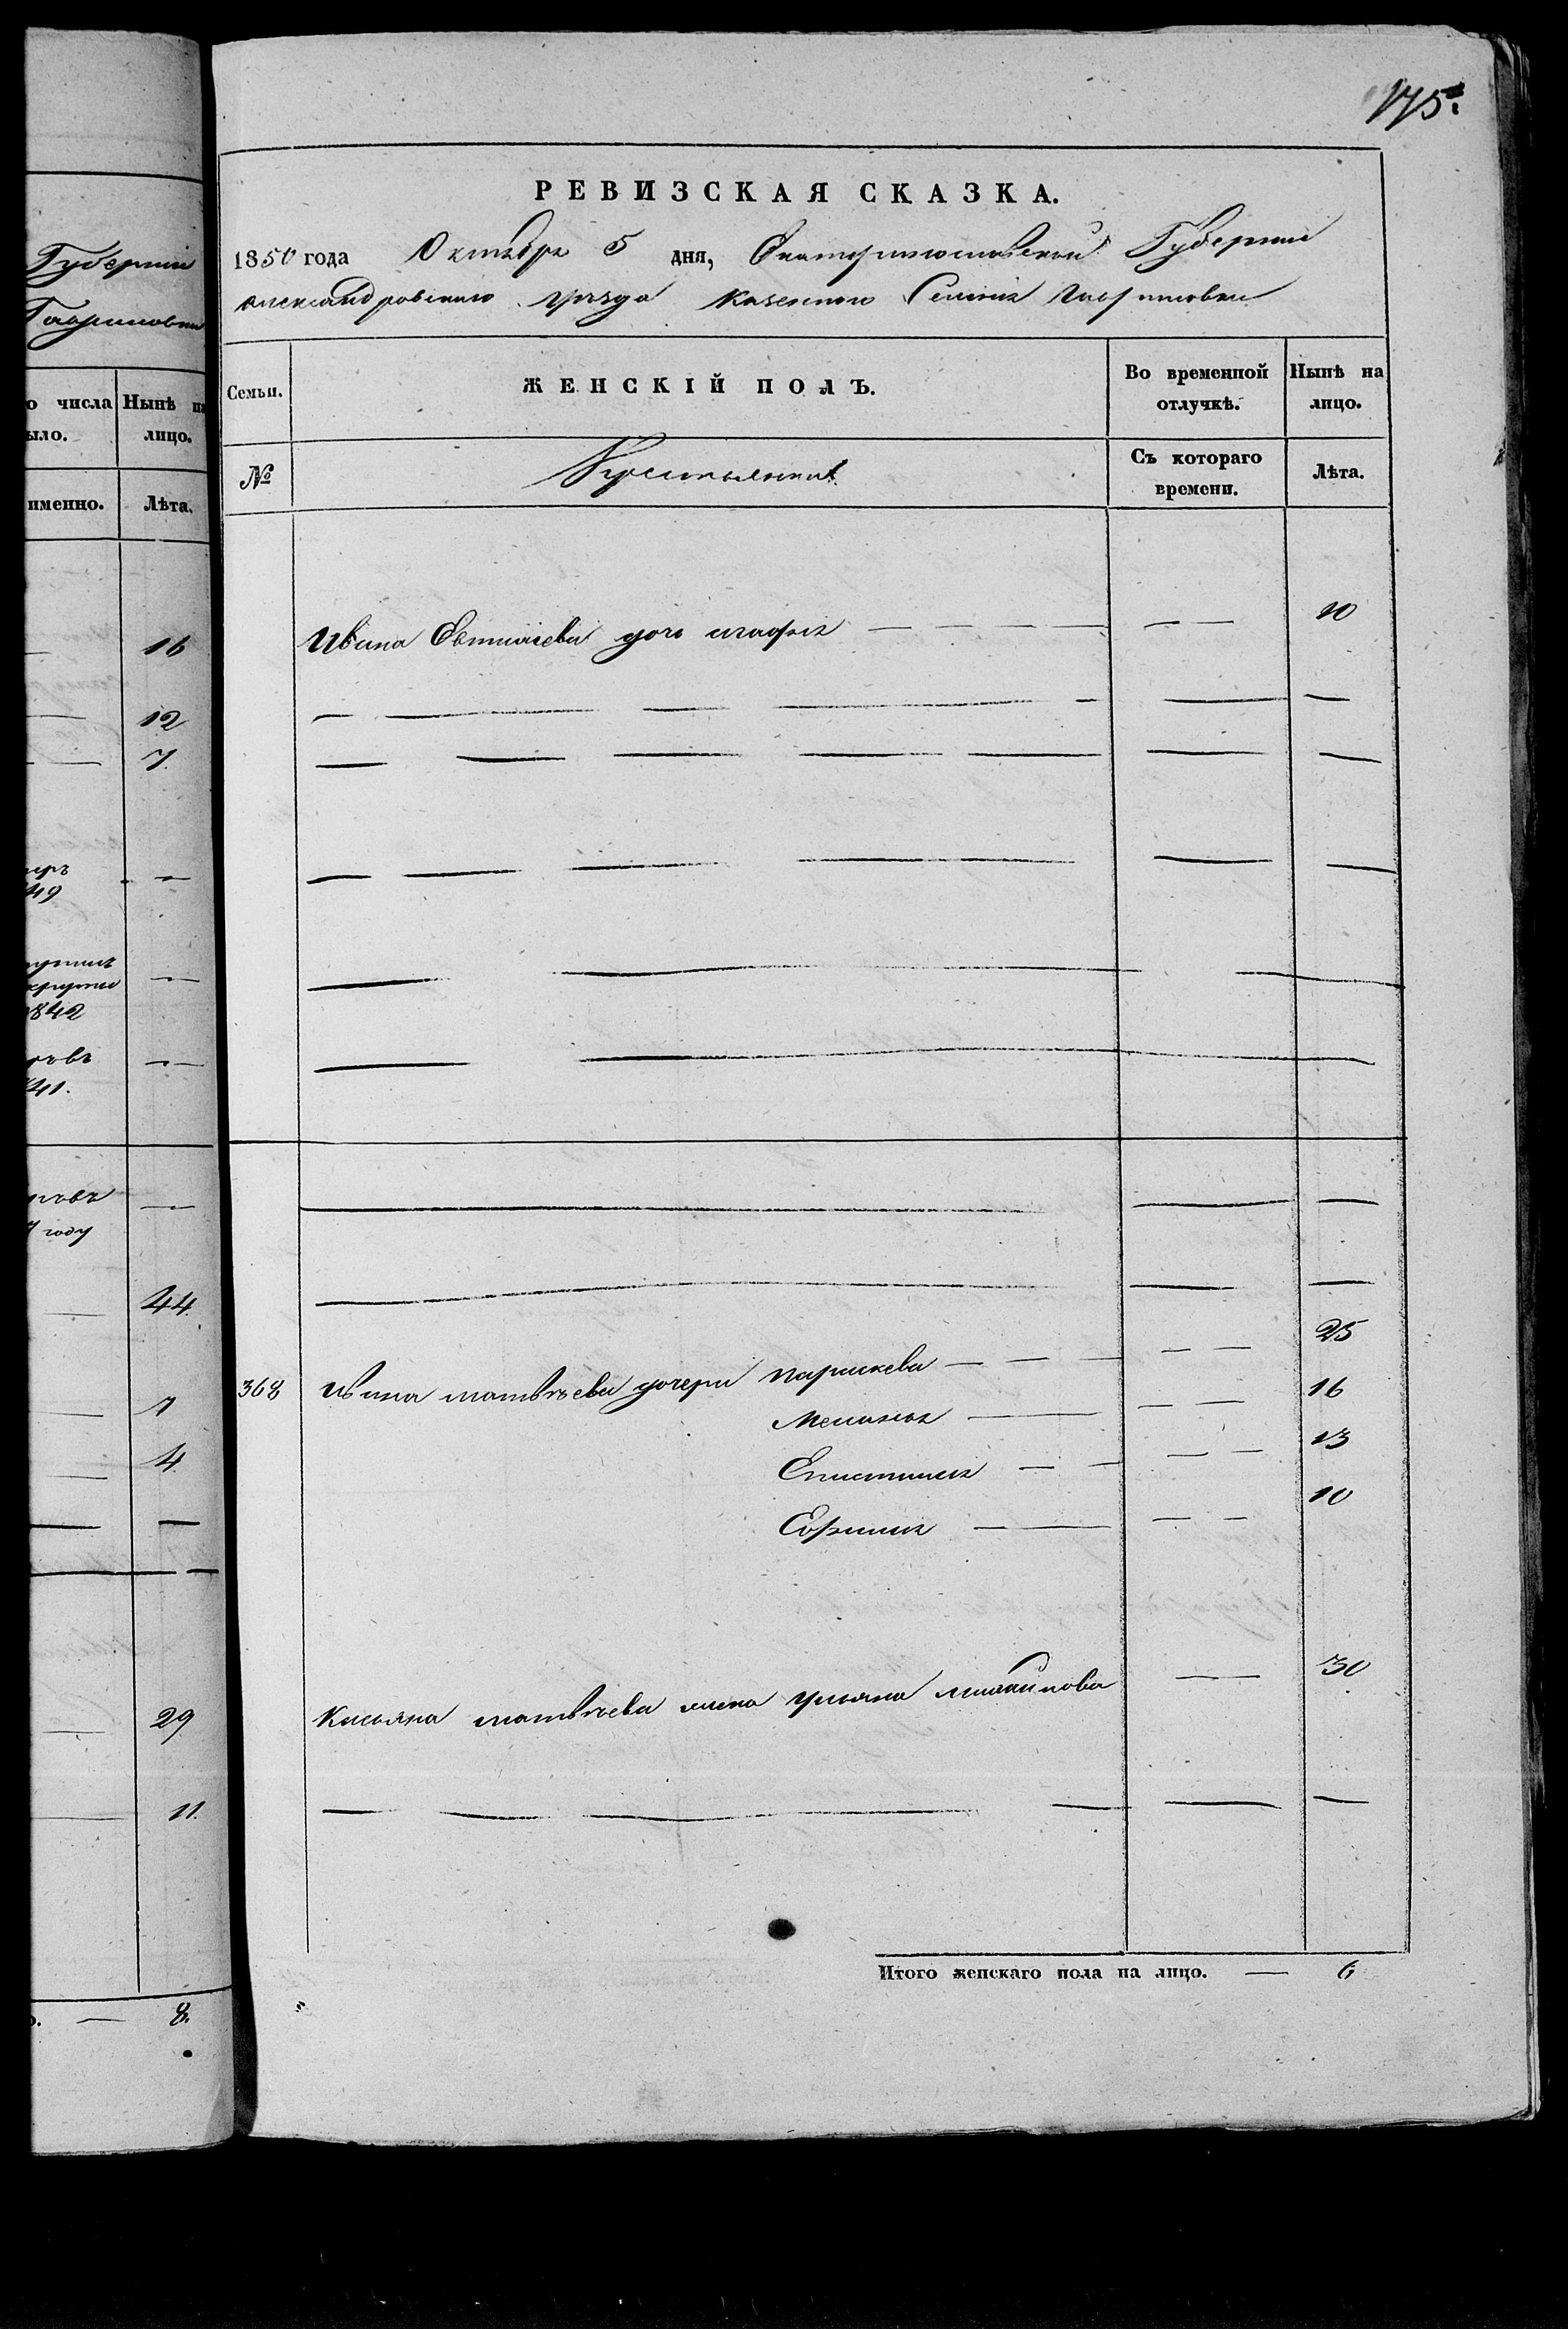 Губерніи
Гавриловки
о числа Нынѣ на
ыло. лицо.
именно. Лѣта.
16
12
7.
49
1842
41.
году
44.
1
4.
29
11.
8.
175.
РЕВИЗСКАЯ СКАЗКА.
1850 года Октября 5 дня, Екатеринославской Губерніи
Александровскаго уѣзда казеннаго Селенія Гавриловки
Семьи. ЖЕНСКІЙ ПОЛЪ. Во временной отлучкѣ. Нынѣ на лицо.
№ Крестьянки Съ котораго времени. Лѣта.
Ивана дочь 10
368 Ивана Матвѣева дочери Параскева 25
Меланья 16
Епистимія 13
Евфимія 10
Касьяна Матвѣева жена Ульяна 30
Итого женскаго пола на лицо. — 6